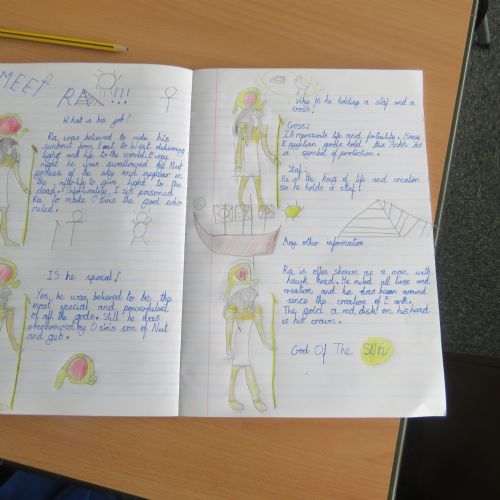 MEET
RA !!!
What is his job?
Ra was believed to ride his
sunboat from East to West delivering
light and life to the world. Every
night he was swallowed by Nut
godess of the sky and appear in
the to give light to the
dead. Unfortunately, Isis poisoned
Ra, to make Osiris the god who
ruled.
IS he special?
Yes, he was believed to be the
most special and powerfulest
of all the gods. Still he was
overpowered by Osiris son of Nut
and geb.
Why is he holding a staf and a
cross?
Cross:
It represents life and Many
Egyptian gods hold this Ankh as
a symbol of protection.
Staf:
He is the king of life and creation
so he holds a staf!
Any other information
Ra is often shown as a man with
hawk head. He ruled all lives and
creation and has been around
since the creation of Earth.
The gold and red disk on his head
is his crown.
God Of The Sun